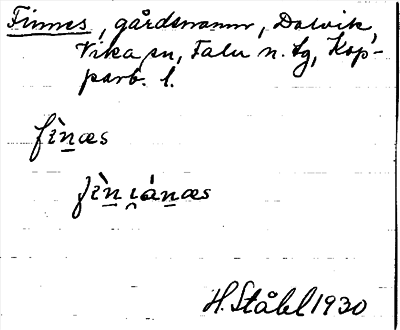 Finnes, gårdsnamn, Dalvik,
Vika sn, Falu n. tg, Kop-
parb. l.
fìnæs
fìn i̯ánæs
H. Ståhl 1930